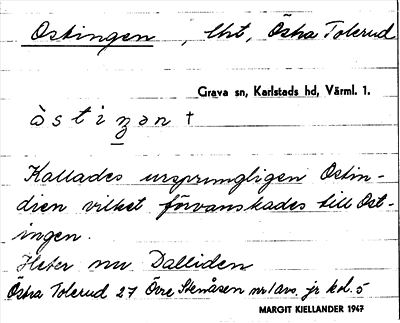 Ostingen, lht, Östra Tolerud
Grava sn, Karlstads hd, Värml. 1.
Kallades ursprungligen Ostin-
dien vilket förvanskades till Ost-
ingen.
Heter nu Dalliden
Östra Tolerud 27 Övre Stenåsen nr 1 avs. jr kol. 5
MARGIT KJELLANDER 1947